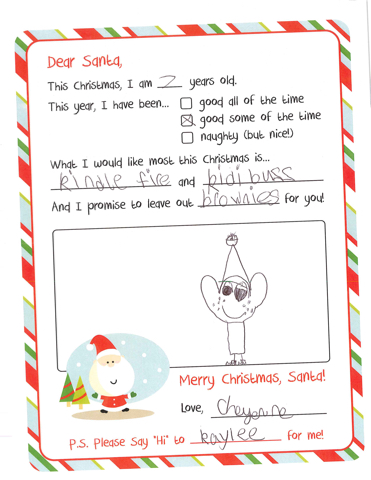 Dear Santa,
This Christmas, I am 7 years old.
This year, I have been... good all of the time
good some of the time
naughty (but nice!)
What I would like most this Christmas is...
kindle fire and kidi buss
And I promise to leave out brownies for you!
Merry Christmas, Santa!
Love, Cheyenne
P.S. Please Say "Hi" to kaylee for me!